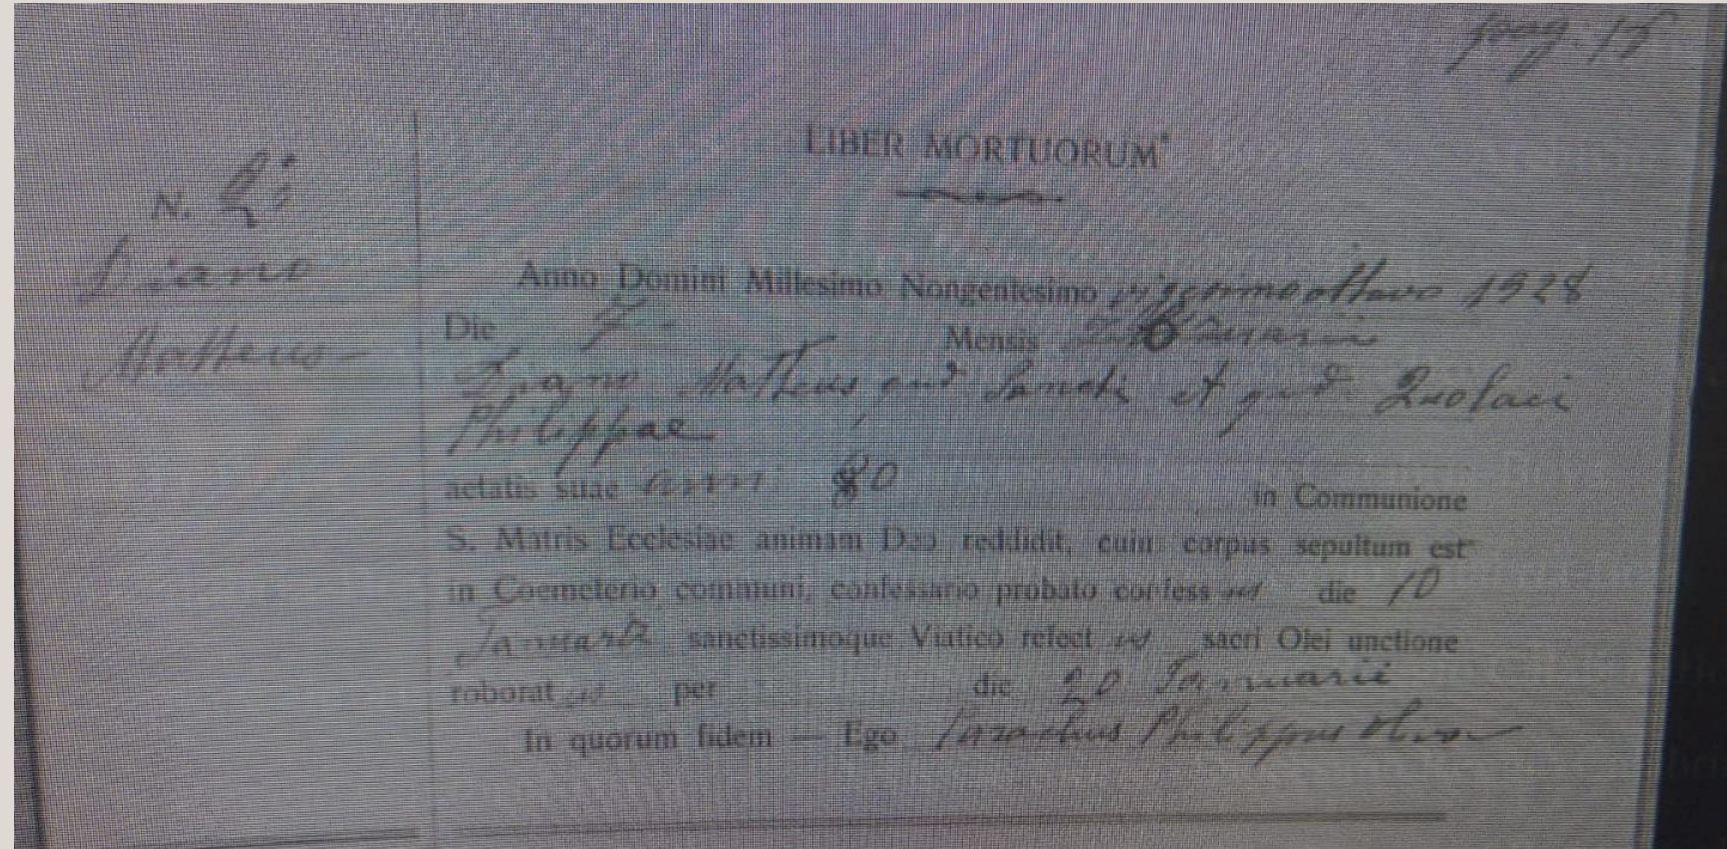 pag. 15
LIBER MORTUORUM
N. 2:
Diano
Mattheus
Anno Domini Millesimo Nongentesimo vigesimo ottavo 1928
Die 7 Mensis
Mattheus qnd Sancti et qnd.
Philippae
aetatis suae ann 80 in Communione
S. Matris Ecclesiae animam Deo reddidit, cuiu corpus sepultum est
in Coemeterio communi, confessario probato confess us die 10
Januarii sanctissimoque Viatico refect us sacri Olei unctione
roborat us per die 20 Januarii
In quorum fidem — Ego Parochus Philippus